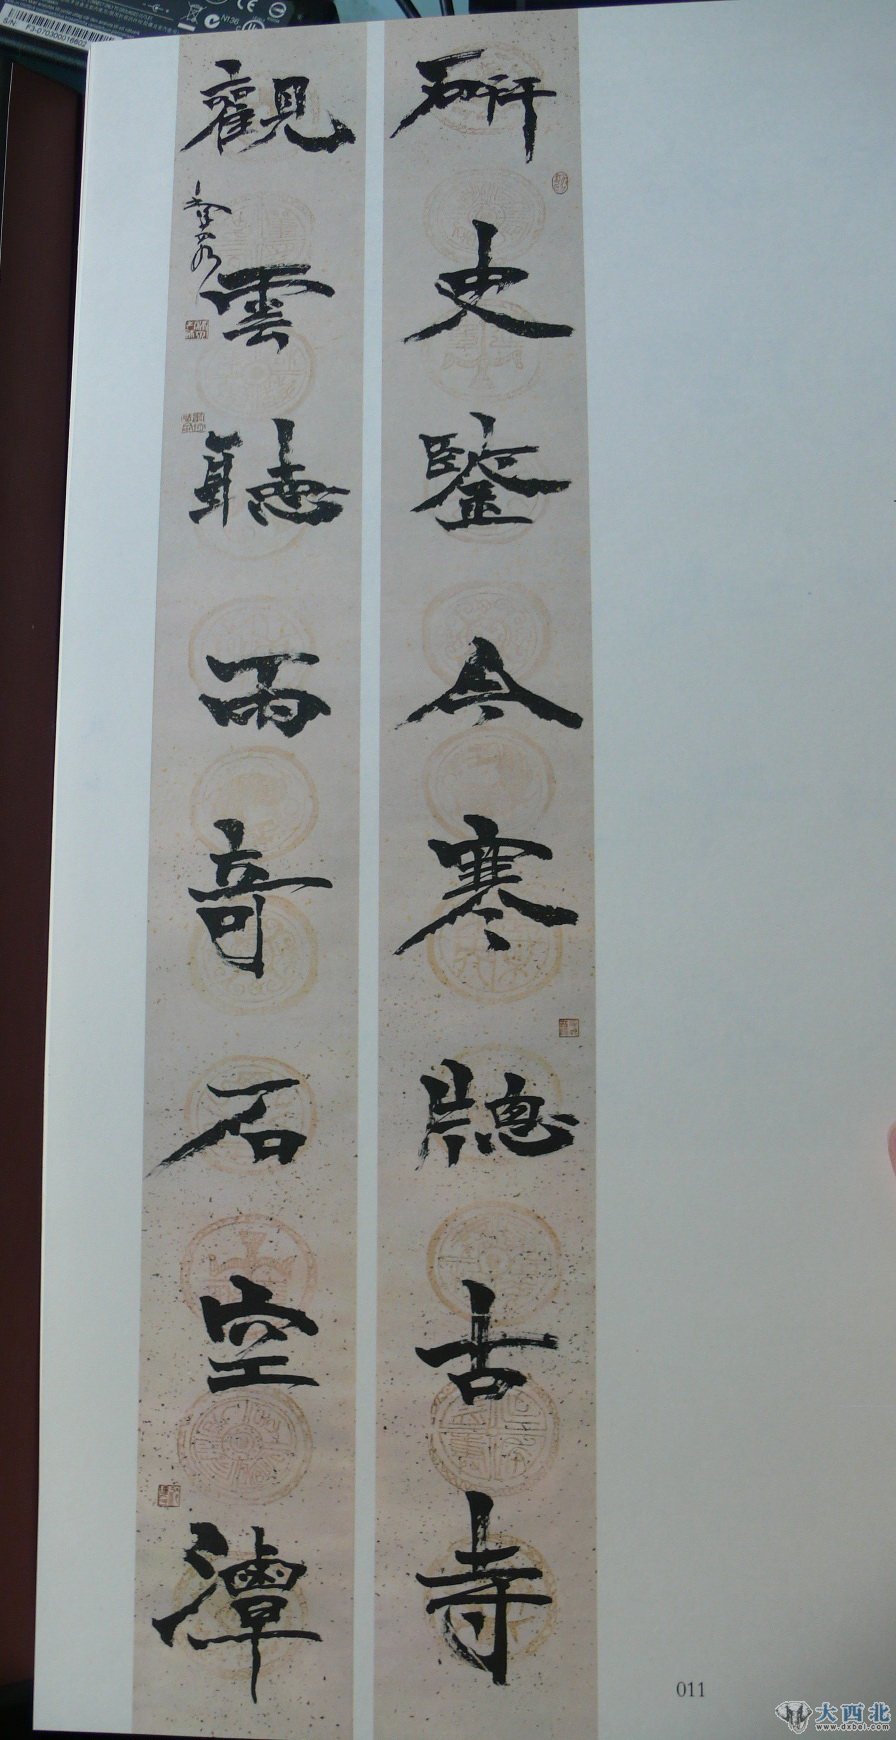 研史鑒今寒牕古寺
觀雲聽雨奇石空潭
011
大西北
www.dxbei.com
S/N: F3-070300016602
N136